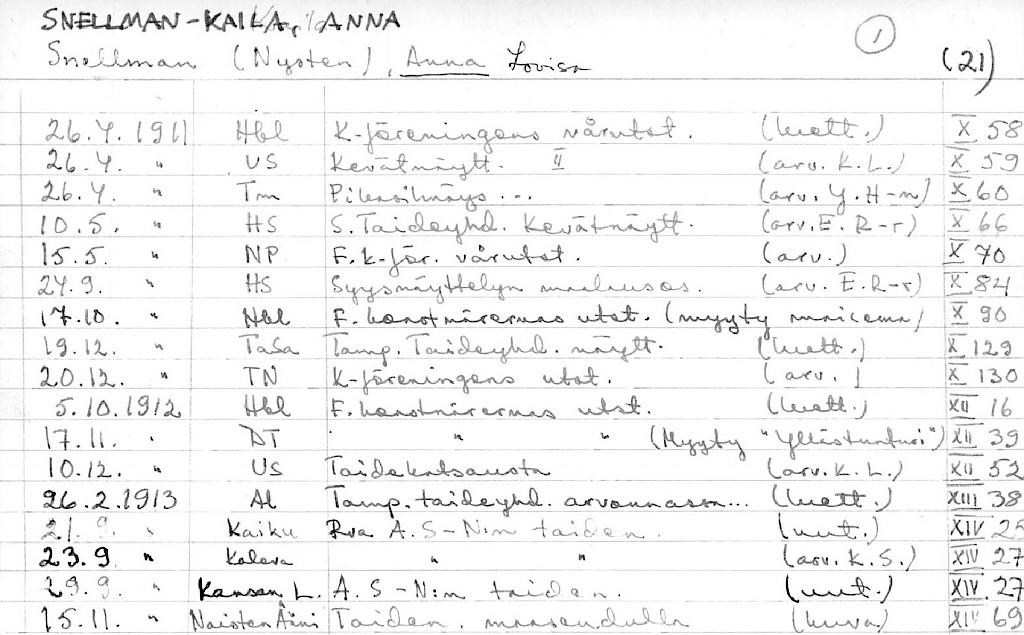 SNELLMAN-KAILA, ANNA
Snellman (Nysten), Anna Lovisa 1 (21)
26.4.1911 Hbl K-föreningens vårutst. (luett.) X 58
26.4. " US Kevätnäytt. II (arv. K.L.) X 59
26.4. " Tm Pikasilmäys... (arv. Y.H-n) X 60
10.5. " HS S.Taideyhd. Kevätnäytt. (arv. E.R-r) X 66
15.5. " NP F.k-för. vårutst. (arv.) X 70
24.9. " HS Syysnäyttelyn maalausos. (arv. E.R-r) X 84
17.10. " Hbl F. konstnärernas utst. (myyty maisema) X 90
19.12. " TaSa Tamp. Taideyhd. näytt. (luett.) X 129
20.12. " TN K-föreningens utst. (arv.) X 130
5.10.1912 Hbl F. konstnärernas utst. (luett.) XII 16
17.11. " DT " " (Myyty "Yllästunturi") XII 39
10.12. " US Taidekatsausta (arv. K.L.) XII 52
26.2.1913 AL Tamp. taideyhd. arvonnassa... (luett.) XIII 38
21.9. " Kaiku Rva A.S-N:n taiden. (uut.) XIV 25
23.9 " Kaleva " " (arv. K.S.) XIV 27
29.9. " Kansan L. A.S-N:n taiden. (uut.) XIV 27
15.11. " Naisten Ääni Taiden. maaseudulla (kuva) XIV 69